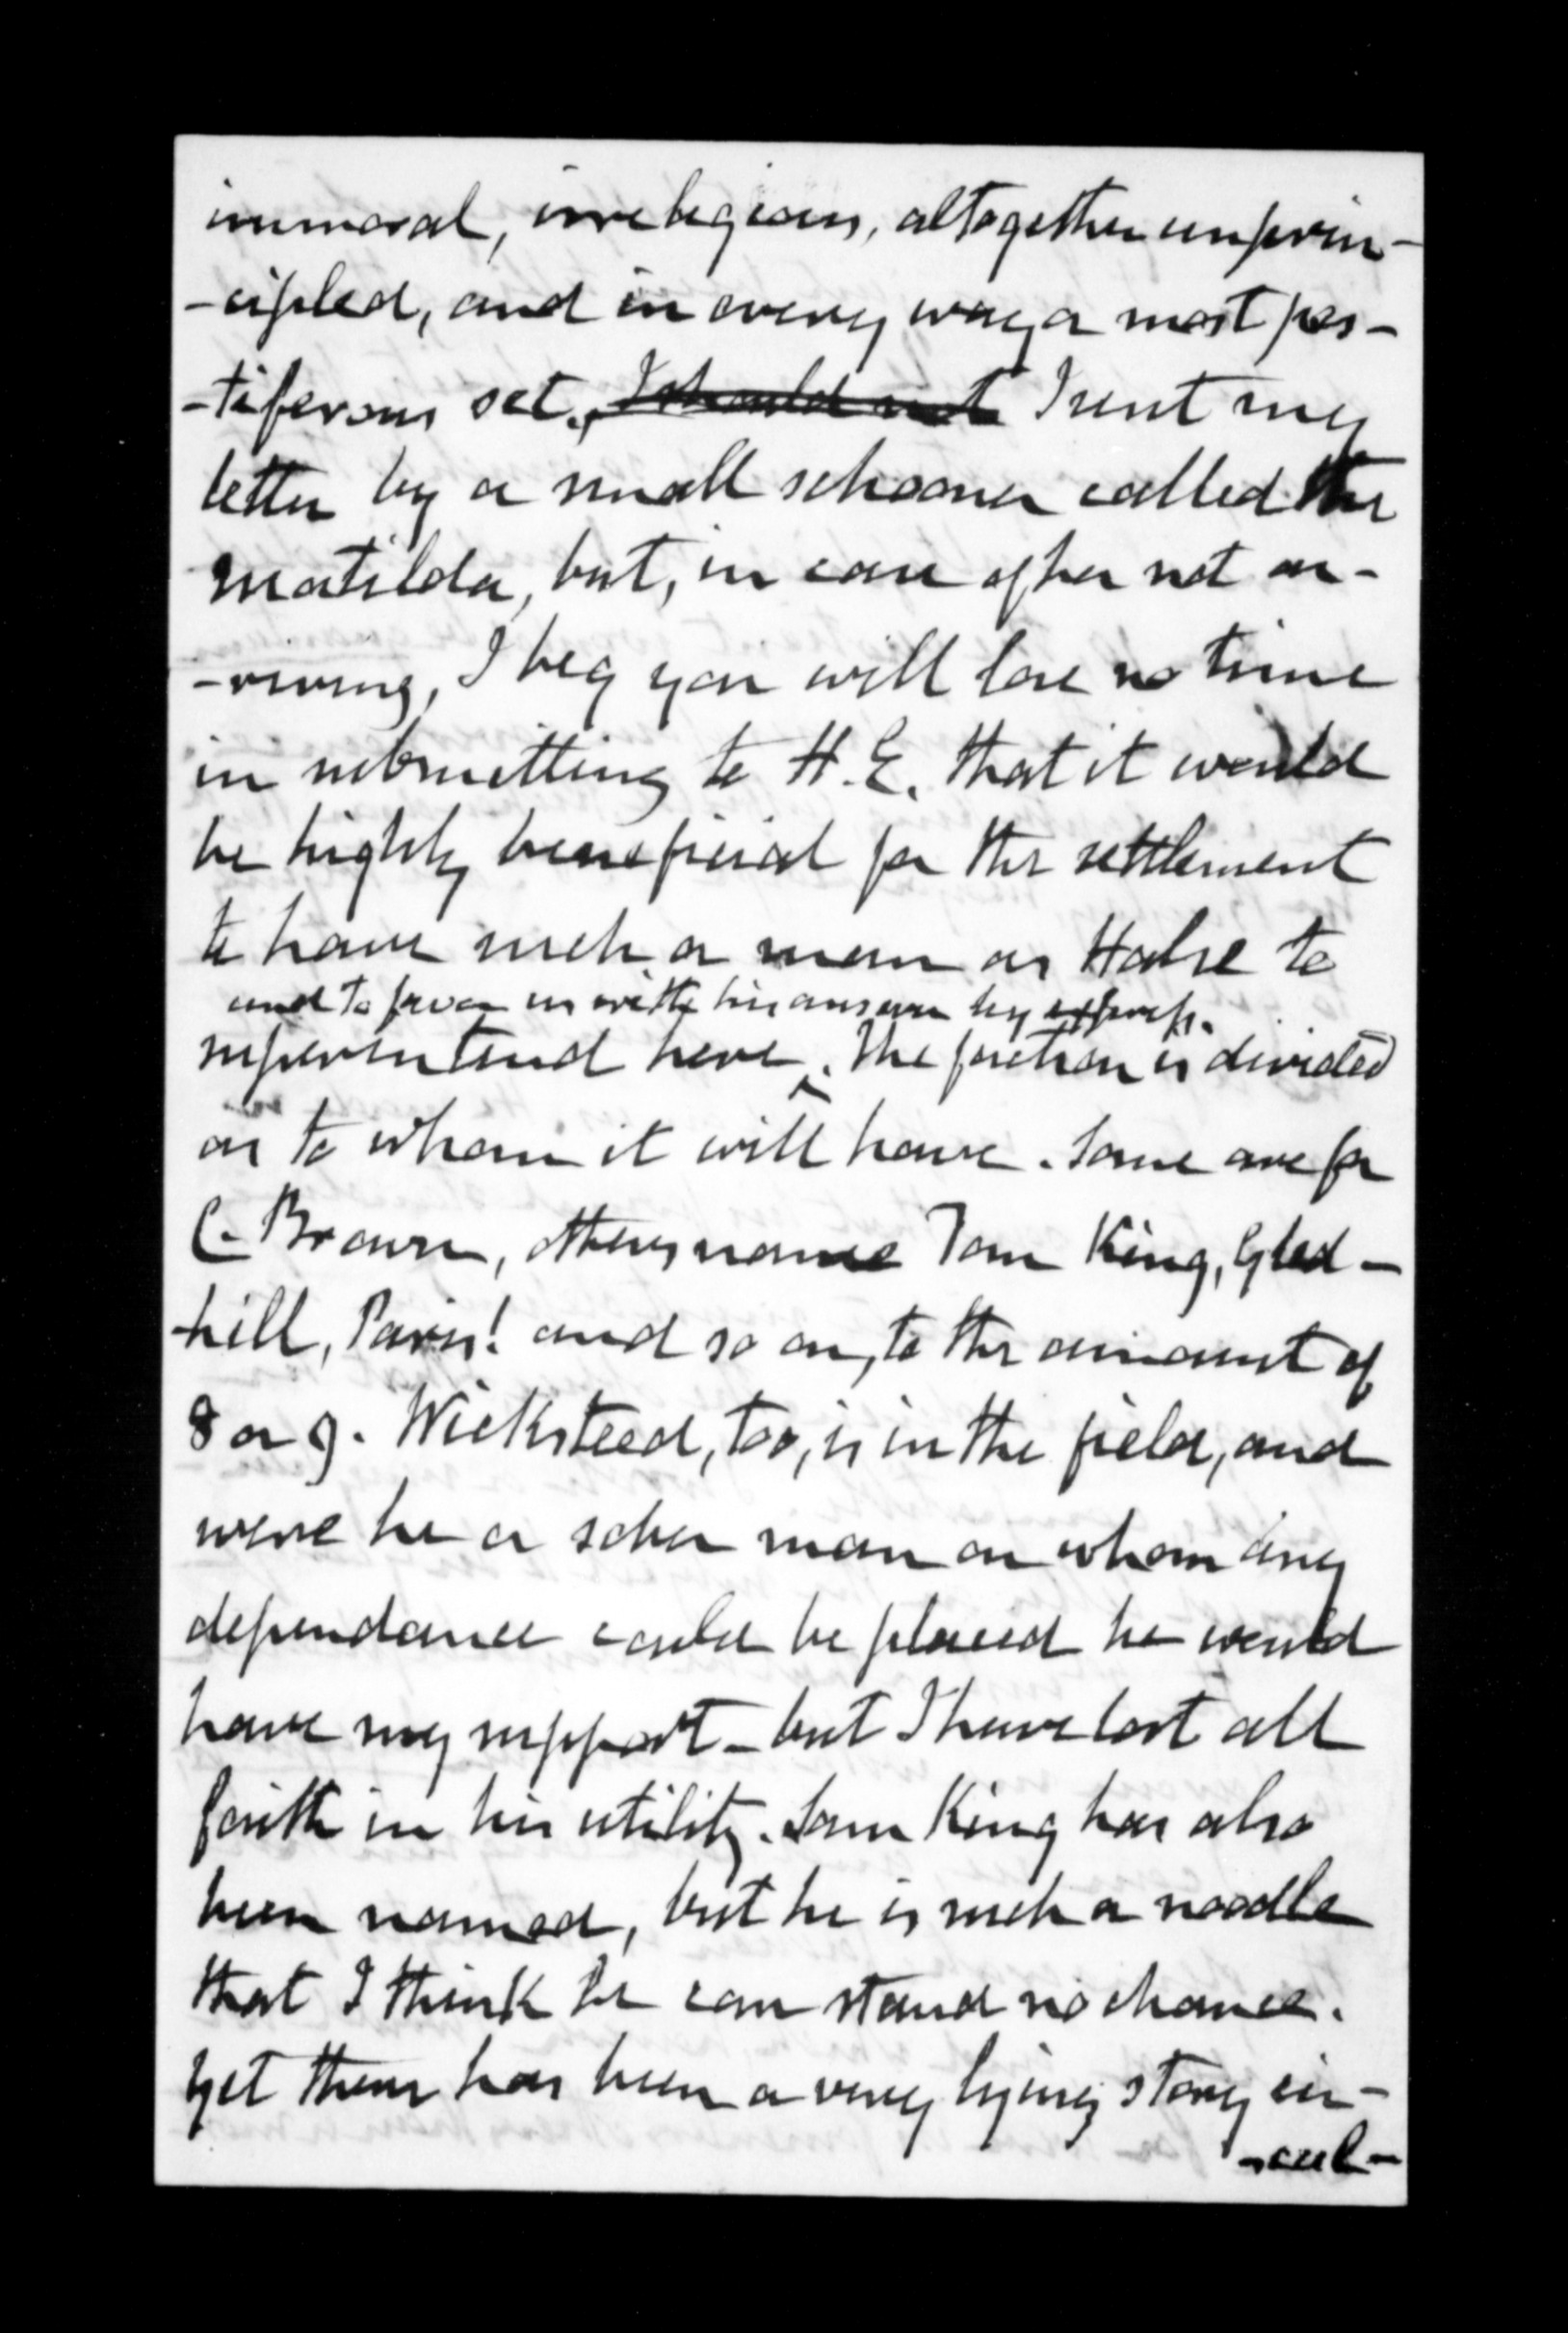 immoral, irreligious, altogether unprin-
-cipled, and in every way a most pes-
-tiferous set. I should not I sent my
letter by a small schooner called the
Matilda, but, in case of her not ar-
-riving, I beg you will lose no time
in submitting to H.E. that it would
be highly beneficial for the settlement
to have such a man as Halse to
and to favor us with his answer by express.
superintend here. The faction is divided
as to whom it will have. Some are for
C. Brown, others name Tom King, Gled-
-hill, Paris! and so on, to the amount of
8 or 9. Wicksteed, too, is in the field, and
were he a sober man on whom any
dependance could be placed he would
have my support - but I have lost all
faith in his utility. Sam King has also
been named, but he is such a noodle
that I think he can stand no chance.
Yet there has been a very lying story cir-
-cul-